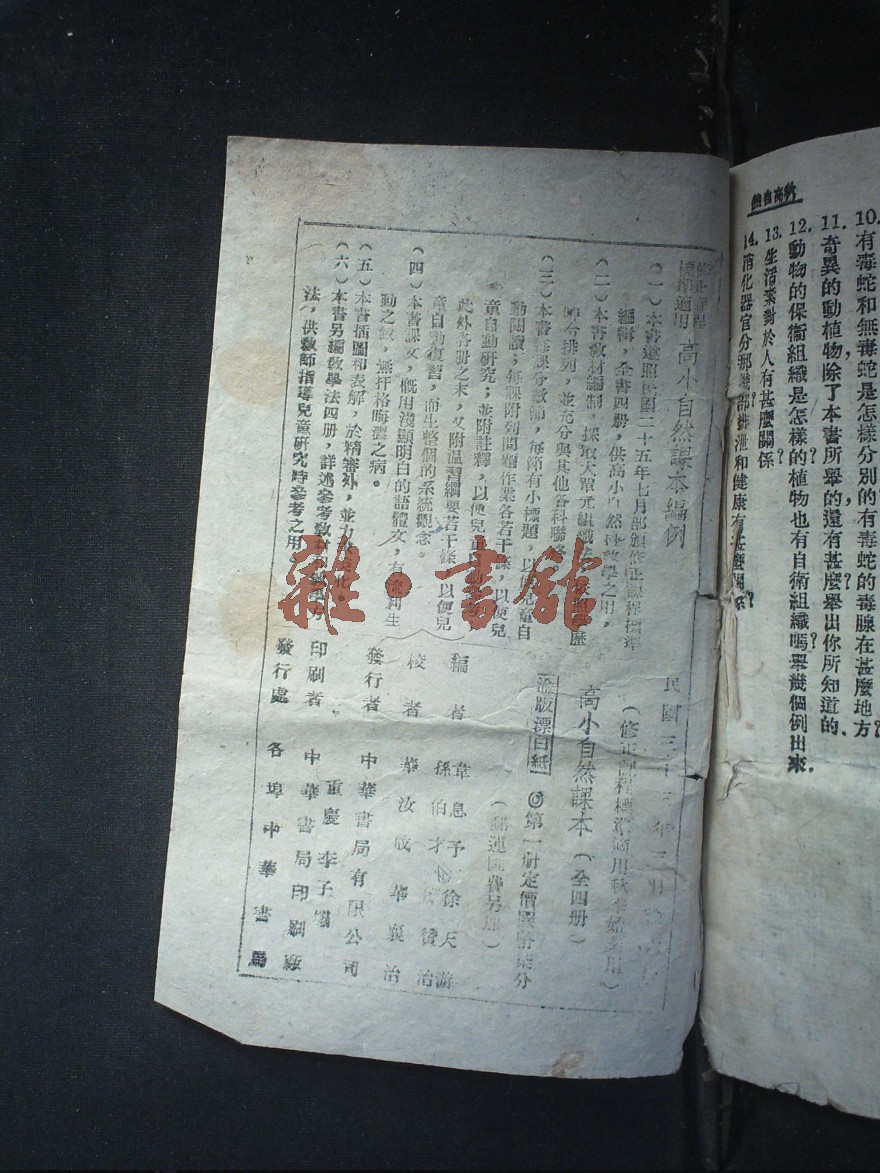 10. 有毒蛇和無毒蛇是怎樣分別的有毒蛇的毒腺在甚麼地方?
11. 奇異的動植物,除了本書所舉的,還有甚麼?舉出你所知道的.
12. 動物的保衛組織是怎樣的?植物也有自衛組織嗎?舉幾個例出來.
13. 生活素對於人有甚麼關係?
14. 消化器官分那幾部?排泄和健康有甚麼關係?
高小自然課本編例
(一)本書遵照民國二十五年七月部頒修正課程標準
編輯,全書四冊,供高小自然科教學之用,
(二)本書教材編制,採取大單元組織
時令排列,並充分與其他各科聯絡
(三)本書每課分數節,每節有小標題,以便兒童自
動閱讀;每課附列問題作業各若干條,以便兒
童自動研究;並附註釋,以便兒童自動
此外各冊之末,又附温習綱要若干條,以便兒
童自動復習,而生整個的系統觀念。
(四)本書課文,概用淺顯明白的語體文,有流利生
動之致,無扞格晦澀之病。
(五)本書插圖和表解,於精審外,並力
(六)本書另編教學法四冊,詳述參考教材和教學方
法,供教師指導兒童研究時參考之用
民國三十三年
(修正課程標準適用秋季始業用)
高小自然課本(全四冊)
渝版漂白紙
◎第一冊定價國幣 分
(郵運匯費另加)
編者 韋息予 徐天游
孫伯才 贊治
校者 華汝成 華襄治
發行者 中華書局有限公司
重慶李子壩
印刷者 中華書局印刷廠
發行處 各埠中華書局
雜·書館